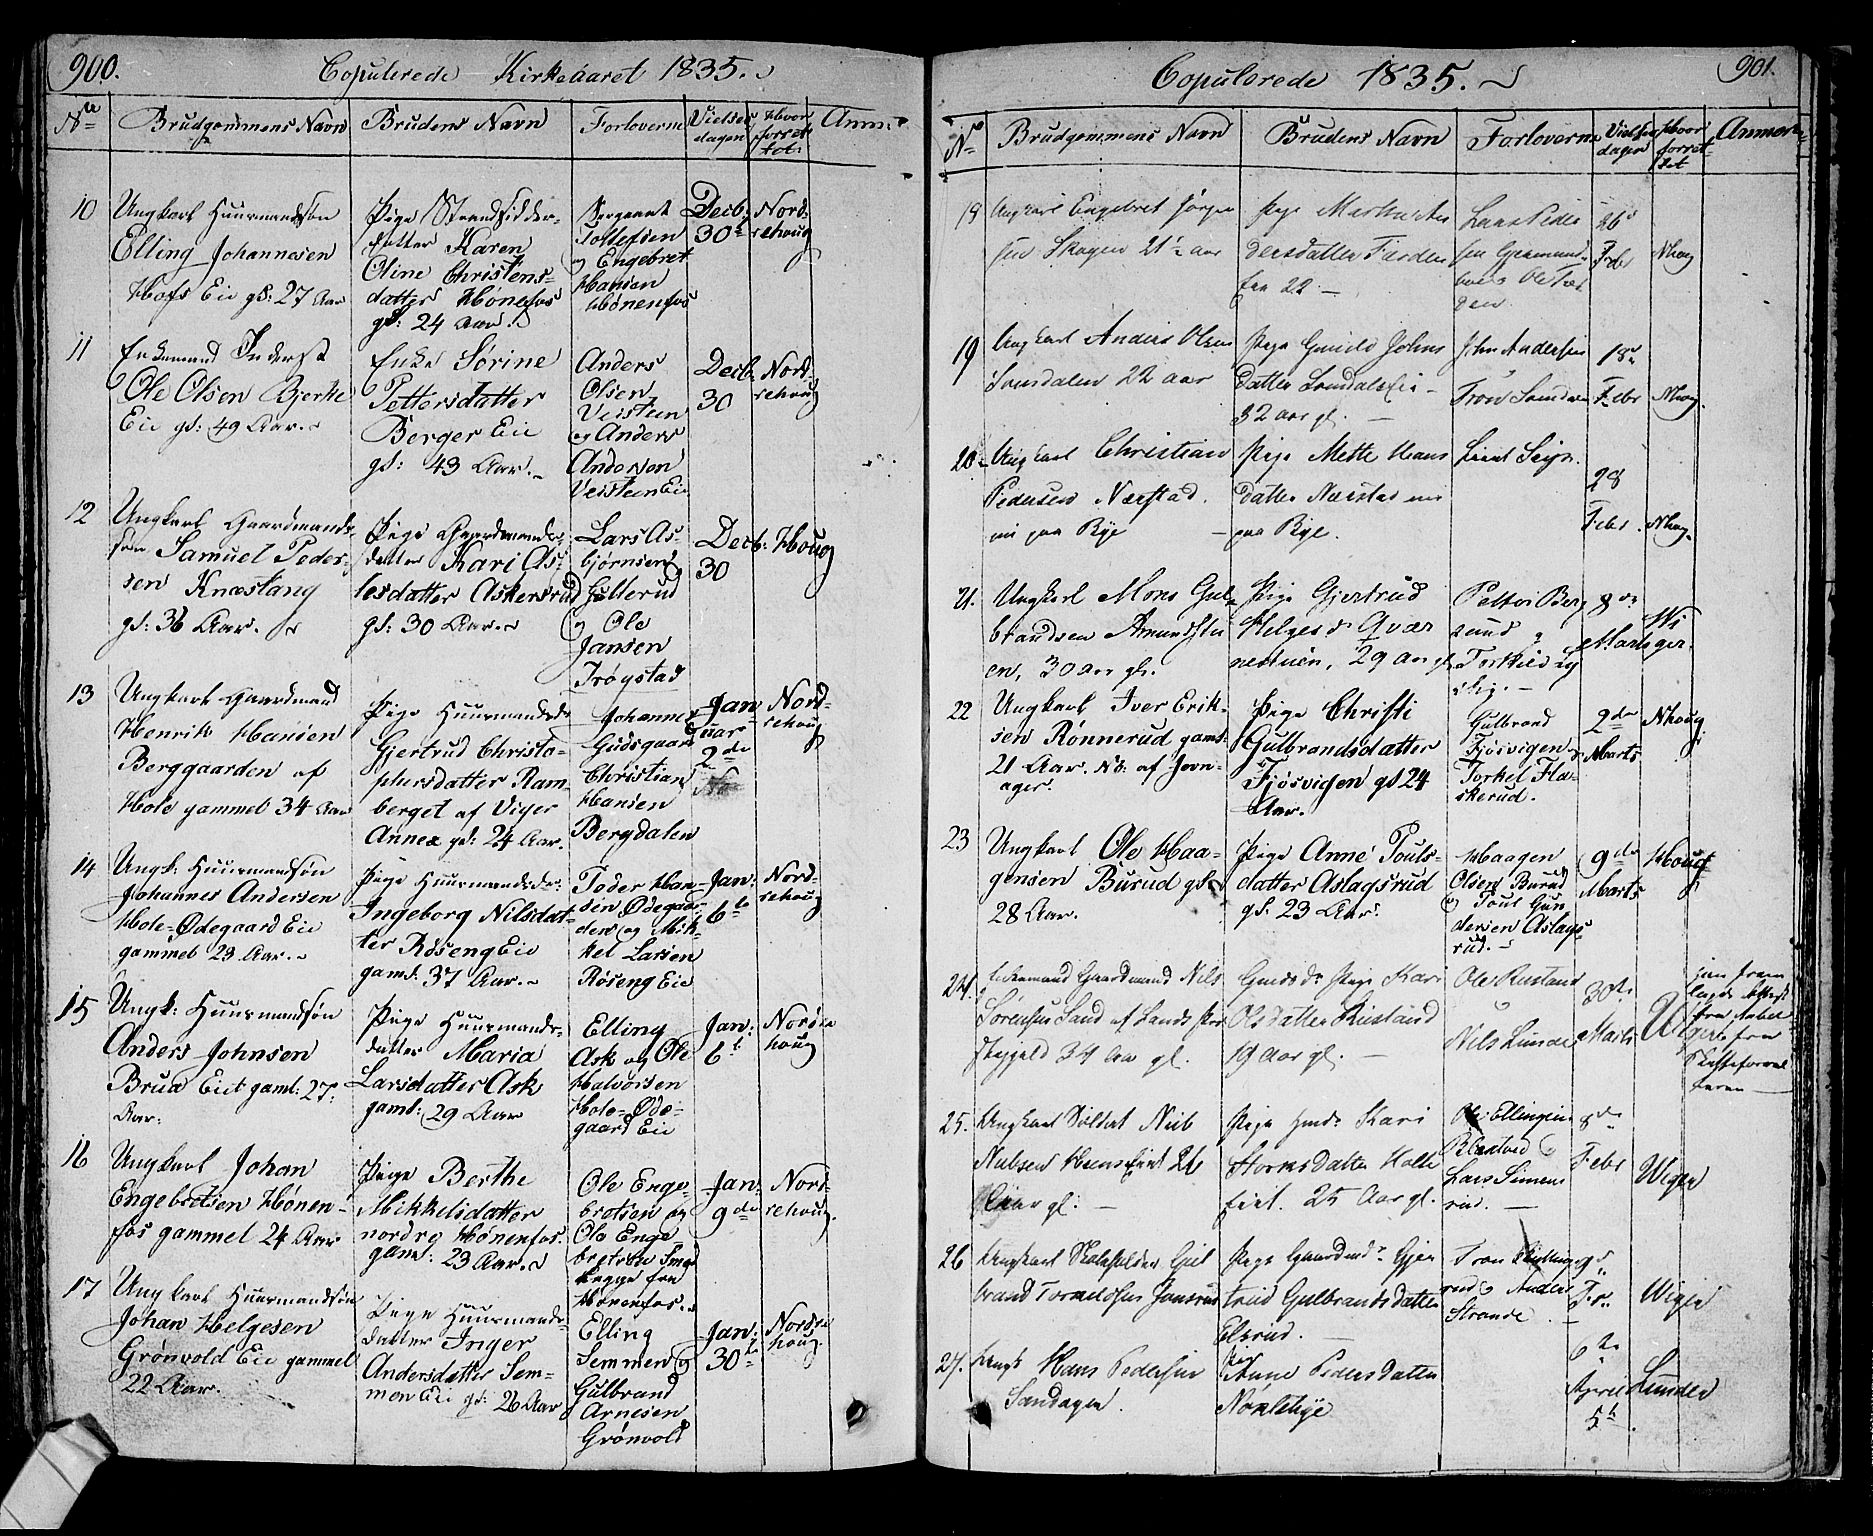 900.
Copulerede Kirkeaaret 1835.
No
Brudgommens Navn
Brudens Navn
Forloverne
Vielses dagen
Hvor forrettet
Anm:
10
Ungkarl Huusmandssøn
Elling Johannesen
Hofs Eie gl: 27 Aar
Pige Strandsidder-
datter Karen
Oline Christens-
datter Hønefos
gl: 24 Aar.
Sergeant
Tollefsen
og Engebret
Hansen
Hønenfos
Decb:
30te
Nord-
rehoug
11
Enkemand Inderst
Ole Olsen Bjerke
Eie gl: 49 Aar.
Enke Sørine
Pettersdatter
Berger Eie
gl: 43 Aar.
Anders
Olsen
Veisteen
og Anders
Andersen
Veisteen Eie
Decb.
30
Nord-
rehoug
12
Ungkarl Gaardmands-
søn Samuel Peder-
sen Knæstang
gl: 36 Aar.
Pige Gaardmands-
datter Kari As-
lesdatter Askersrud
gl: 30 Aar.
Lars As-
bjørnsen
Gullerud
og Ole
Jansen
Trøgstad
Decb:
30
Houg
13
Ungkarl Gaardmand
Henrik Hansen
Berggaarden af
Hole gammel 34 Aar
Pige Huusmandsdr
Gjertrud Christo-
phersdatter Ram-
berget af Viger
Annex gl: 24 Aar.
Johannes
Gudsgaard
Christian
Hansen
Bergdalen
Jan
uar
2de
Nord-
rehoug
14
Ungk: Huusmandssøn
Johannes Andersen
Hole-Ødegaard Eie
gammel 23 Aar.
Pige Huusmandsdr:
Ingeborg Nilsdat-
ter Røseng Eie
gaml: 37 Aar.
Peder Han-
sen Ødegaar-
den og Mik-
kel Larsen
Røseng Eie
Jan:
6te
Nord-
rehoug
15
Ungk: Huusmandssøn
Anders Johnsen
Brua Eie gaml: 27
Aar:
Pige Huusmands-
datter Maria
Larsdatter Ask
gaml: 29 Aar
Elling
Ask og Ole
Halvorsen
Hole-Øde-
gaard Eie
Jan:
6t
Nordre
houg
16
Ungkarl Johan
Engebretsen Hønen-
fos gammel 24 Aar
Pige Berthe
Mikkelsdatter
nordre Hønenfos
gaml: 23 Aar.
Ole Enge-
bretsen og
Ole Enge
bretsen
bægge fra
Hønenfos.
Jan:
9de
Nord-
rehoug.
17
Ungkarl Huusmandssøn
Johan Helgesen
Grønvold Eie gammel
22 Aar.
Pige Huusmands-
datter Inger
Andersdatter Sem-
men Eie gl: 26 Aar
Elling
Semmen og
Gulbrand
Arnesen
Grønvold
Jan:
30te
Nordre
houg.
901.
Copulerede 1835.
No
Brudgommens Navn
Brudens Navn
Forloverne
Vielses dagen
Hvor forret- tet
Anmærk
19
Ungkarl Engebret Jørgen
sen Skagen 21½ aar
Pige Martha An
dersdatter
22
Lars Peder
sen
26
Febr
Nhoug
19
Ungkarl Anders Olsen
Somdalen 22 aar
Pige Gunild Johns
datter Somdalseie
32 aar gl.
John Andersen
Tron Somdalen
18de
Febr
Nhoug
20
Ungkarl Christian
Pedersen Nærstad
nu paa Bye
Pige Mette Hans
datter Nærstad nu
paa Bye.
28
Febr.
Nhoug.
21.
Ungkarl Mons Gul-
brandsen Amundstu
en, 30 aar gl.
Pige Gjertrud
Helgesd Qvær
nestuen, 29 aar gl.
Petter Berg
sund
8de
Marts
Wi
ger.
22
Ungkarl Iver Erik-
sen Rønnerud gaml:
21 Aar. NB: af Jevn-
ager.
Pige Christi
Gulbrandsdatter
Fjøsvigen gl 24
Aar.
Gulbrand
Fjøsvigen
Torkel Fla-
skerud.
2de
Marts
Nhoug
23
Ungkarl Ole Haa-
gensen Burud gl
28 Aar.
Pige Anne Pouls-
datter Aslagsrud
gl: 23 Aar:
Haagen
Olsen Burud
og Poul Gun
dersen Aslags
rud.
9de
Marts
Houg
24.
Enkemand Gaardmand Nils
Sørensen Sand af Lands Præ
stegjeld 34 Aar gl.
Gmdsdr Pige Kari
Olsdatter Rustand
19 aar gl.
Ole Rustand
Nils Lunde
30te
Marts
Wiger
fra
Skifteforval
teren
25.
Ungkarl Soldat Nils
Nielsen
aar gl.
Pige Kari
datter
eiet. 25 Aar gl.
Ole Ellingsen
Lars Simens
rud.
8de
Febr
Wiger
26
Ungkarl Gul
brand
Pige Gjer
trud Gulbrandsdatter
Elsrud.
Tron
rud og Anders
Strande.
9de
Wiger
27.
Ungk Hans Pedersen
Sandagen.
Pige
Anne Pedersdatter
6te
April
5t
Lunder